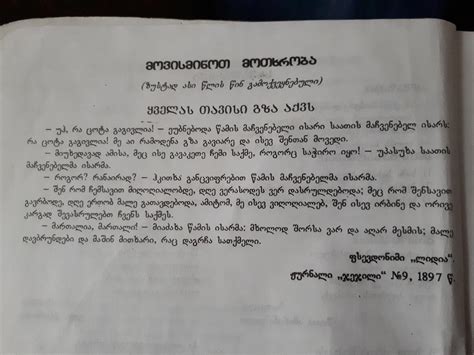 მოვისმინოთ მოთხრობა
(ზუსტად ასი წლის წინ გამოქვეყნებული)
ყველას თავისი გზა აქვს
– უჰ, რა ცოტა გაგივლია! – ეუბნებოდა წამის მაჩვენებელი ისარი საათის მაჩვენებელ ისარს:
რა ცოტა გაგივლია! მე აი რამოდენა გზა გავიარე და ისევ შენთან მოვედი.
– მიუხედავად ამისა, მეც ისე გავაკეთე ჩემი საქმე, როგორც საჭირო იყო! – უპასუხა საათის
მაჩვენებელმა ისარმა.
– როგორ? რანაირად? – ჰკითხა განცვიფრებით წამის მაჩვენებელმა ისარმა.
– შენ რომ ჩემსავით მიღოღიალობდე, დღე ვერასოდეს ვერ დასრულდებოდა; მეც რომ შენსავით
გავრბოდე, დღე ერთობ მალე გათავდებოდა, ამიტომ, მე ისევ ვიღოღიალებ, შენ ისევ ირბინე და ორივე
კარგად შევასრულებთ ჩვენს საქმეს.
– მართალია, მართალი! – მიაძახა წამის ისარმა: მხოლოდ შორსა ვარ და აღარ მესმის; მალე
დავბრუნდები და მაშინ მითხარი, რაც დაგრჩა სათქმელი.
ფსევდონიმი „ლიდია“.
ჟურნალი „ჯეჯილი“ №9, 1897 წ.